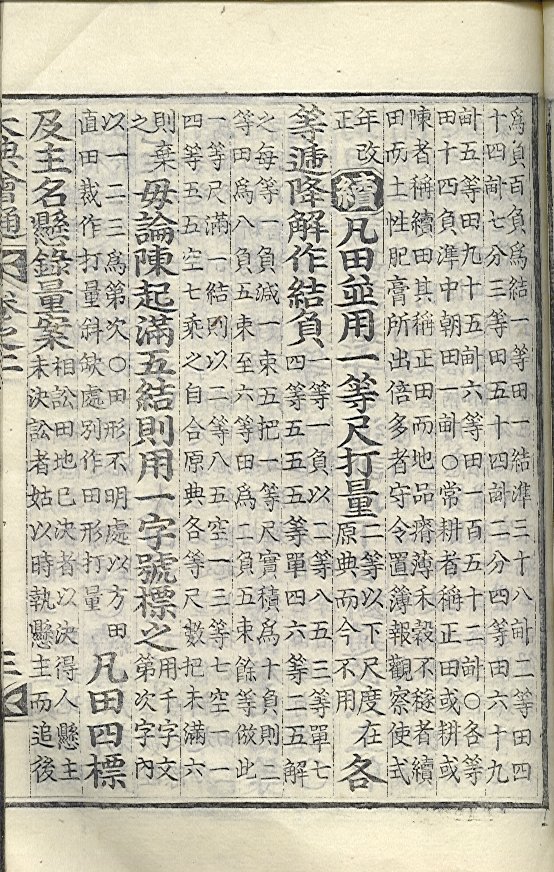 爲負百負爲結一等田一結準三十八畝二等田四
十四畝七分三等田五十四畝二分四等田六十九
畝五等田九十五畝六等田一百五十二畝○各等
田十四負準中朝田一畝○常耕者稱正田或耕或
陳者稱續田其稱正田而地品瘠薄禾穀不穟者續
田而土性肥膏所出倍多者守令置簿報觀察使式
年改
正
續凡田並用一等尺打量
二等以下尺度在
原典而今不用
各
等遞降解作結負
一等一負以二等八五三等單七
四等五五五等單四六等二五解
之每等一負減一束五把一等尺實積爲十負則二
等田爲八負五束至六等田爲二負五束餘等倣此
一等尺滿一結則以二等八五空一三等七空一一
四等五五空七乘之自合原典各等尺數把未滿六
則棄
之
毋論陳起滿五結則用一字號標之
用千字文
第次字內
以一二三爲第次○田形不明處以方田
直田裁作打量斜缺處別作田形打量
凡田四標
及主名懸錄量案
相訟田地已決者以決得人懸主
未決訟者姑以時執懸主而追後
大典會通 卷之二 三